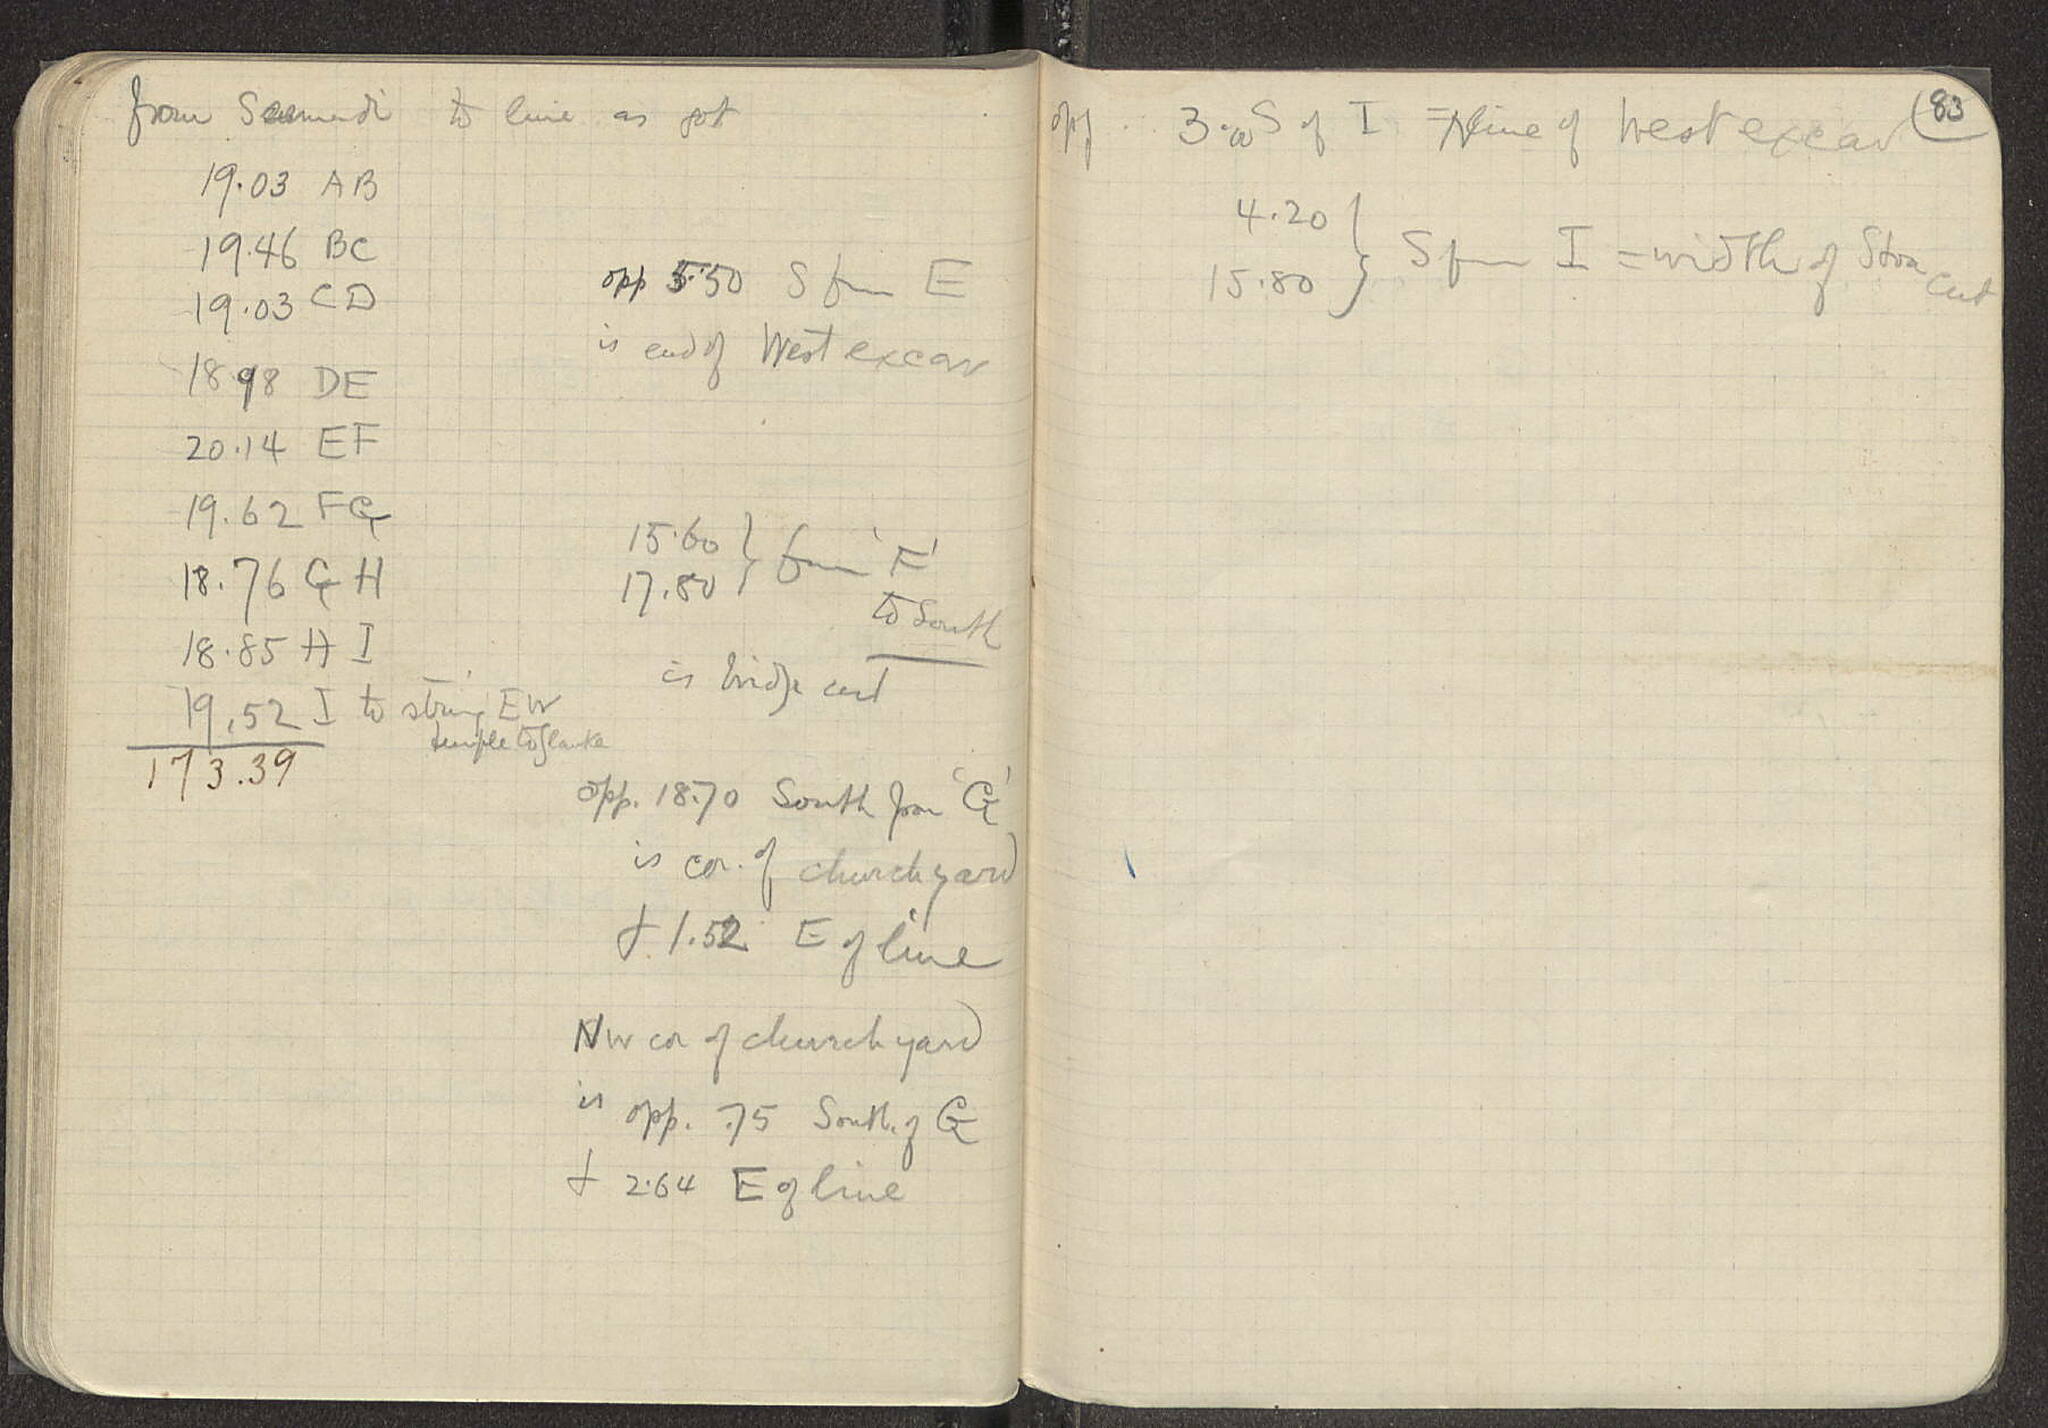 from to line as got
19.03 AB
19.46 BC
19.03 CD
18 98 DE
20.14 EF
19.62 FG
18.76 G H
18.85 H I
19.52 I to string EW
temple to
173.39
opp 5.50 S from E
is end of West excav
15.60 } from 'F'
17.80
to South
is bridge cut
opp. 18.70 South from 'G'
is cor. of churchyard
& 1.52 E of line
NW cor of churchyard
is opp. .75 South of G
& 2.64 E of line
83
opp 3.00 S of I = N line of West excav
4.20 } S from I = width of Stoa cut
15.80